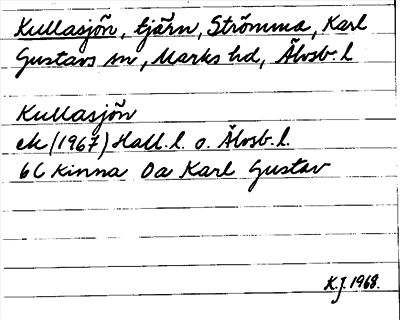 Kullasjön, tjärn, Strömma, Karl
Gustavs sn, Marks hd, Älvsb. l

Kullasjön
ek (1967) Hall. l. o. Älvsb. l.
6C Kinna 0a Karl Gustav

K.J. 1968.